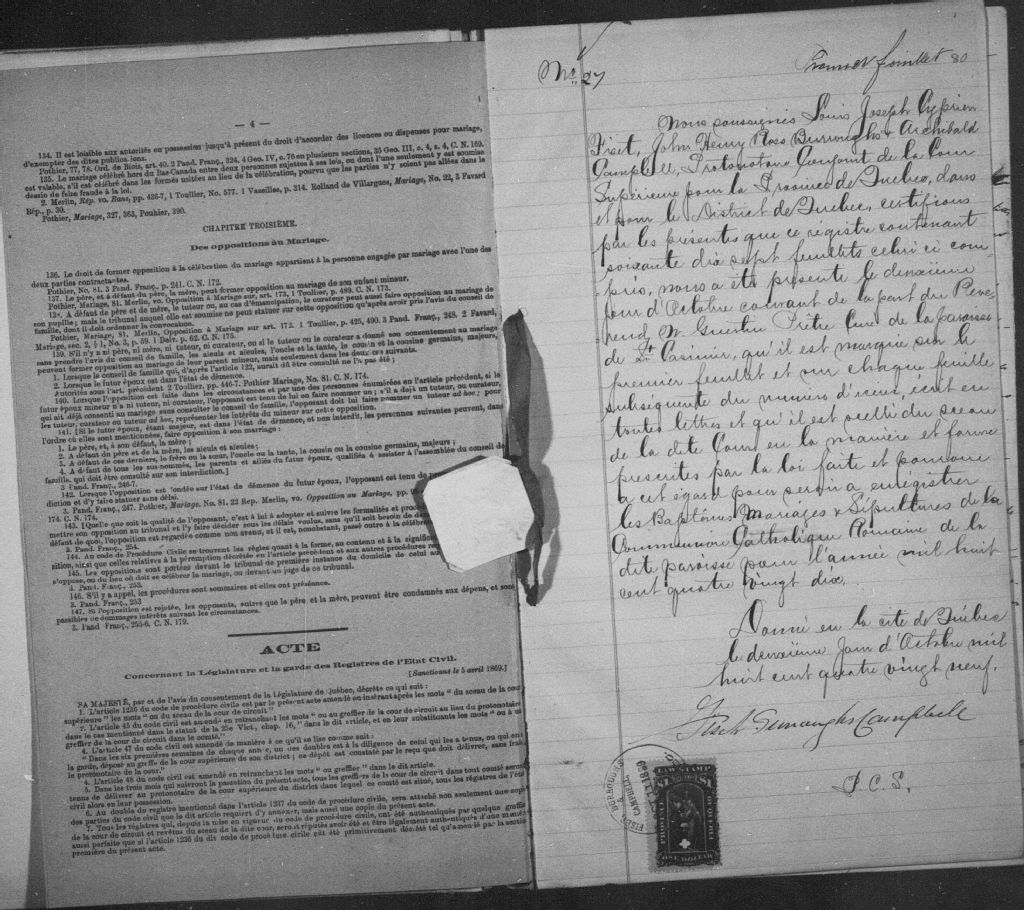 — 4 —
134. Il est loisible aux autorités en possession jusqu'à présent du droit d'accorder des licences ou dispenses pour mariage,
d'exempter des dites publications.
Pothier, 77, 78. Ord. de Blois, art. 40. 2 Pand. Franç., 324, 4 Geo. IV, c. 76 en plusieurs sections, 35 Geo. III, c. 4, s. 4, C. N. 169.
135. Le mariage célébré hors du Bas-Canada entre deux personnes sujettes à ses lois, ou dont l'une seulement y est soumise
est valable, s'il est célébré dans les formes usitées au lieu de la célébration, pourvu que les parties n'y soient pas allées dans le
dessin de faire fraude à la loi.
2. Merlin, Rép. vo. Bans, pp. 436-7, 1 Toullier, No. 577. 1 Vazeilles, p. 314. Rolland de Villargues, Mariage, No. 22, 3 Favard
Rép., p. 30.
Pothier, Mariage, 327, 363, Pouhier, 390.
CHAPITRE TROISIÈME.
Des oppositions au Mariage.
136. Le droit de former opposition à la célébration du mariage appartient à la personne engagée par mariage avec l'une des
deux parties contractantes.
Pothier, No. 81. 3 Pand. Franç., p. 241. C. N. 172.
137. Le père, et à défaut du père, la mère, peut former opposition au mariage de son enfant mineur.
Pothier, Mariage, 81. Merlin, vo. Opposition à Mariage sur art. 173, 1 Toullier, p. 489. C. N. 173.
138. A défaut de père et de mère, le tuteur ou, au cas d'émancipation, le curateur peut aussi faire opposition au mariage de
son pupille; mais le tribunal auquel elle est soumise ne peut statuer sur cette opposition qu'après avoir pris l'avis du conseil de
famille, dont il doit ordonner la convocation.
Pothier, Mariage, 81. Merlin, Opposition à Mariage sur art. 172. 1 Toullier, p. 425, 490. 3 Pand. Franç., 248. 2 Favard,
Mariage, sec. 2, § 1, No. 3, p. 59. 1 Delv. p. 62. C. N. 175.
139. S'il n'y a ni père, ni mère, ni tuteur, ni curateur, ou si le tuteur ou le curateur a donné son consentement au mariage
sans prendre l'avis du conseil de famille, les aïeuls et aïeules, l'oncle et la tante, le cousin et la cousine germains, majeurs,
peuvent former opposition au mariage de leur parent mineur, mais seulement dans les deux cas suivants.
1. Lorsque le conseil de famille qui, d'après l'article 122, aurait dû être consulté ne l'a pas été;
2. Lorsque le futur époux est dans l'état de démence.
Autorités sous l'art. précédent 2 Toullier, pp. 446-7. Pothier Mariage, No. 81. C. N. 174.
140. Lorsque l'opposition est faite dans les circonstances et par une des personnes énumérées en l'article précédent, si le
futur époux mineur n'a ni tuteur, ni curateur, l'opposant est tenu de lui en faire nommer un; s'il a déjà un tuteur, ou curateur,
qui ait déjà consenti au mariage sans consulter le conseil de famille, l'opposant doit lui faire nommer un tuteur ad hoc; pour
les tuteur, curateur ou tuteur ad hoc, représenter les intérêts du mineur sur cette opposition.
141. [Si le futur époux, étant majeur, est dans l'état de démence, et non interdit, les personnes suivantes peuvent, dans
l'ordre où elles sont mentionnées, faire opposition à son mariage:
1. Le père, et, à son défaut, la mère;
2. A défaut du père et de la mère, les aïeuls et aïeules;
3. A défaut de ces derniers, le frère ou la sœur, l'oncle ou la tante, le cousin ou la cousine germains, majeurs;
4. A défaut de tous les sus-nommés, les parents et alliés du futur époux, qualifiés à assister à l'assemblée du conseil de
famille, qui doit être consulté sur son interdiction.]
3 Pand. Franç., 246-7.
142. Lorsque l'opposition est fondée sur l'état de démence du futur époux, l'opposant est tenu de
diction et d'y faire statuer sans délai.
3. Pand. Franç., 247. Pothier, Mariage, No. 81. 22 Rep. Merlin, vo. Opposition au Mariage, pp.
174. C. N. 174.
143. [Quelle que soit la qualité de l'opposant, c'est à lui à adopter et suivre les formalités et procéd
mettre son opposition au tribunal et l'y faire décider sous les délais voulus, sans qu'il soit besoin de
défaut de quoi, l'opposition est regardée comme non avenu, et il est, nonobstant, passé outre à la célébra
3. Pand. Franç., 254.
144. Au code de Procédure Civile se trouvent les règles quant à la forme, au contenu et à la signific
sition, ainsi que celles relatives à la péremption décrétée en l'article précédent et aux autres procédures re
145. Les oppositions sont portées devant le tribunal de première instance du domicile de celui au
s'oppose, ou du lieu où doit se célébrer le mariage, ou devant un juge de ce tribunal.
3. Pand. Franç., 253.
146. S'il y a appel, les procédures sont sommaires et elles ont préséance.
3. Pand. Franç., 253
147. Si l'opposition est rejetée, les opposants, autres que le père et la mère, peuvent être condamnés aux dépens, et sont
passibles de dommages intérêts suivant les circonstances.
3. Pand Franç., 255-6. C. N. 179.
ACTE
Concernant la Législature et la garde des Registres de l'Etat Civil.
[Sanctionné le 5 avril 1869.]
SA MAJESTÉ, par et de l'avis du consentement de la Législature de Québec, décrète ce qui suit:
1. L'article 1236 du code de procédure civile est par le présent acte amendé en insérant après les mots " du sceau de la cour
supérieure " les mots " ou du sceau de la cour de circuit "
2. L'article 45 du code civil est amendé en retranchant les mots " ou au greffier de la cour de circuit au lieu du protonotaire
dans le cas mentionné dans le statut de la 25e Vict., chap. 16, " dans le dit article, et en leur substituant les mots " ou à un
greffier de la cour de circuit dans le comté."
4. L'article 47 du code civil est amendé de manière à ce qu'il se lise comme suit:
" Dans les six premières semaines de chaque année, un des doubles est à la diligence de celui qui les a tenus, ou qui en a
la garde, déposé au greffe de la cour supérieure de son district; ce dépôt est constaté par le reçu que doit délivrer, sans frais
le protonotaire de la cour."
4. L'article 48 du code civil est amendé en retranchant les mots " ou greffier " dans le dit article.
5. Dans les trois mois qui suivront la passation du présent acte, tous les greffiers de la cour de circuit dans tout comté seront
tenus de délivrer au protonotaire de la cour supérieure du district dans lequel ce comté est situé, tous les registres de l'état
civil alors en leur possession.
6. Au double du registre mentionné dans l'article 1237 du code de procédure civile, sera attaché non seulement une copie
des parties du code civil que le dit article requiert d'y annexer, mais aussi une copie du présent acte.
7. Tous les registres qui, depuis la mise en vigueur du code de procédure civile, ont été authentiqués par quelque greffier
de la cour de circuit et revêtus du sceau de la dite cour, seront réputés avoir été et être légalement authentiqués d'une manière
aussi parfaite que si l'article 1236 du dit code de procédure civile eût été primitivement décrété tel qu'amendé par la section
première du présent acte.
No. 27
Premier feuillet 80
Nous soussignés Louis Joseph Cyprien
Fiset, John Henry Ross Burroughs & Archibald
Campbell, Protonotaire Conjoint de la Cour
Supérieure pour la Province de Quebec, dans
et pour le District de Quebec, certifions
par les présentes que ce registre contenant
soixante dix sept feuillets celui ci com
pris, nous a été présenté le deuxième
jour d'Octobre courant de la part du Révé-
rend M. Guertin Prêtre Curé de la paroisse
de St Casimir, qu'il est marqué sur le
premier feuillet et sur chaque feuille
subséquente du numéro d'iceux, écrit en
toutes lettres et qu'il est scellé du sceau
de la dite Cour en la manière et forme
présentés par la loi faite et pourvue
a cet égard pour servir a enrégistrer
les Baptêmes, Mariages & Sépultures de la
Communion Catholique Romaine de la
dite paroisse pour l'année mil huit
cent quatre vingt dix.
Donné en la cité de Québec
le deuxième Jour d'Octobre mil
huit cent quatre vingt neuf.
Fiset Burroughs Campbell
P. C. S.
FISET BURROUGHS & CAMPBELL
$1 LAW STAMP $1
PROVINCE QUEBEC
ONE DOLLAR